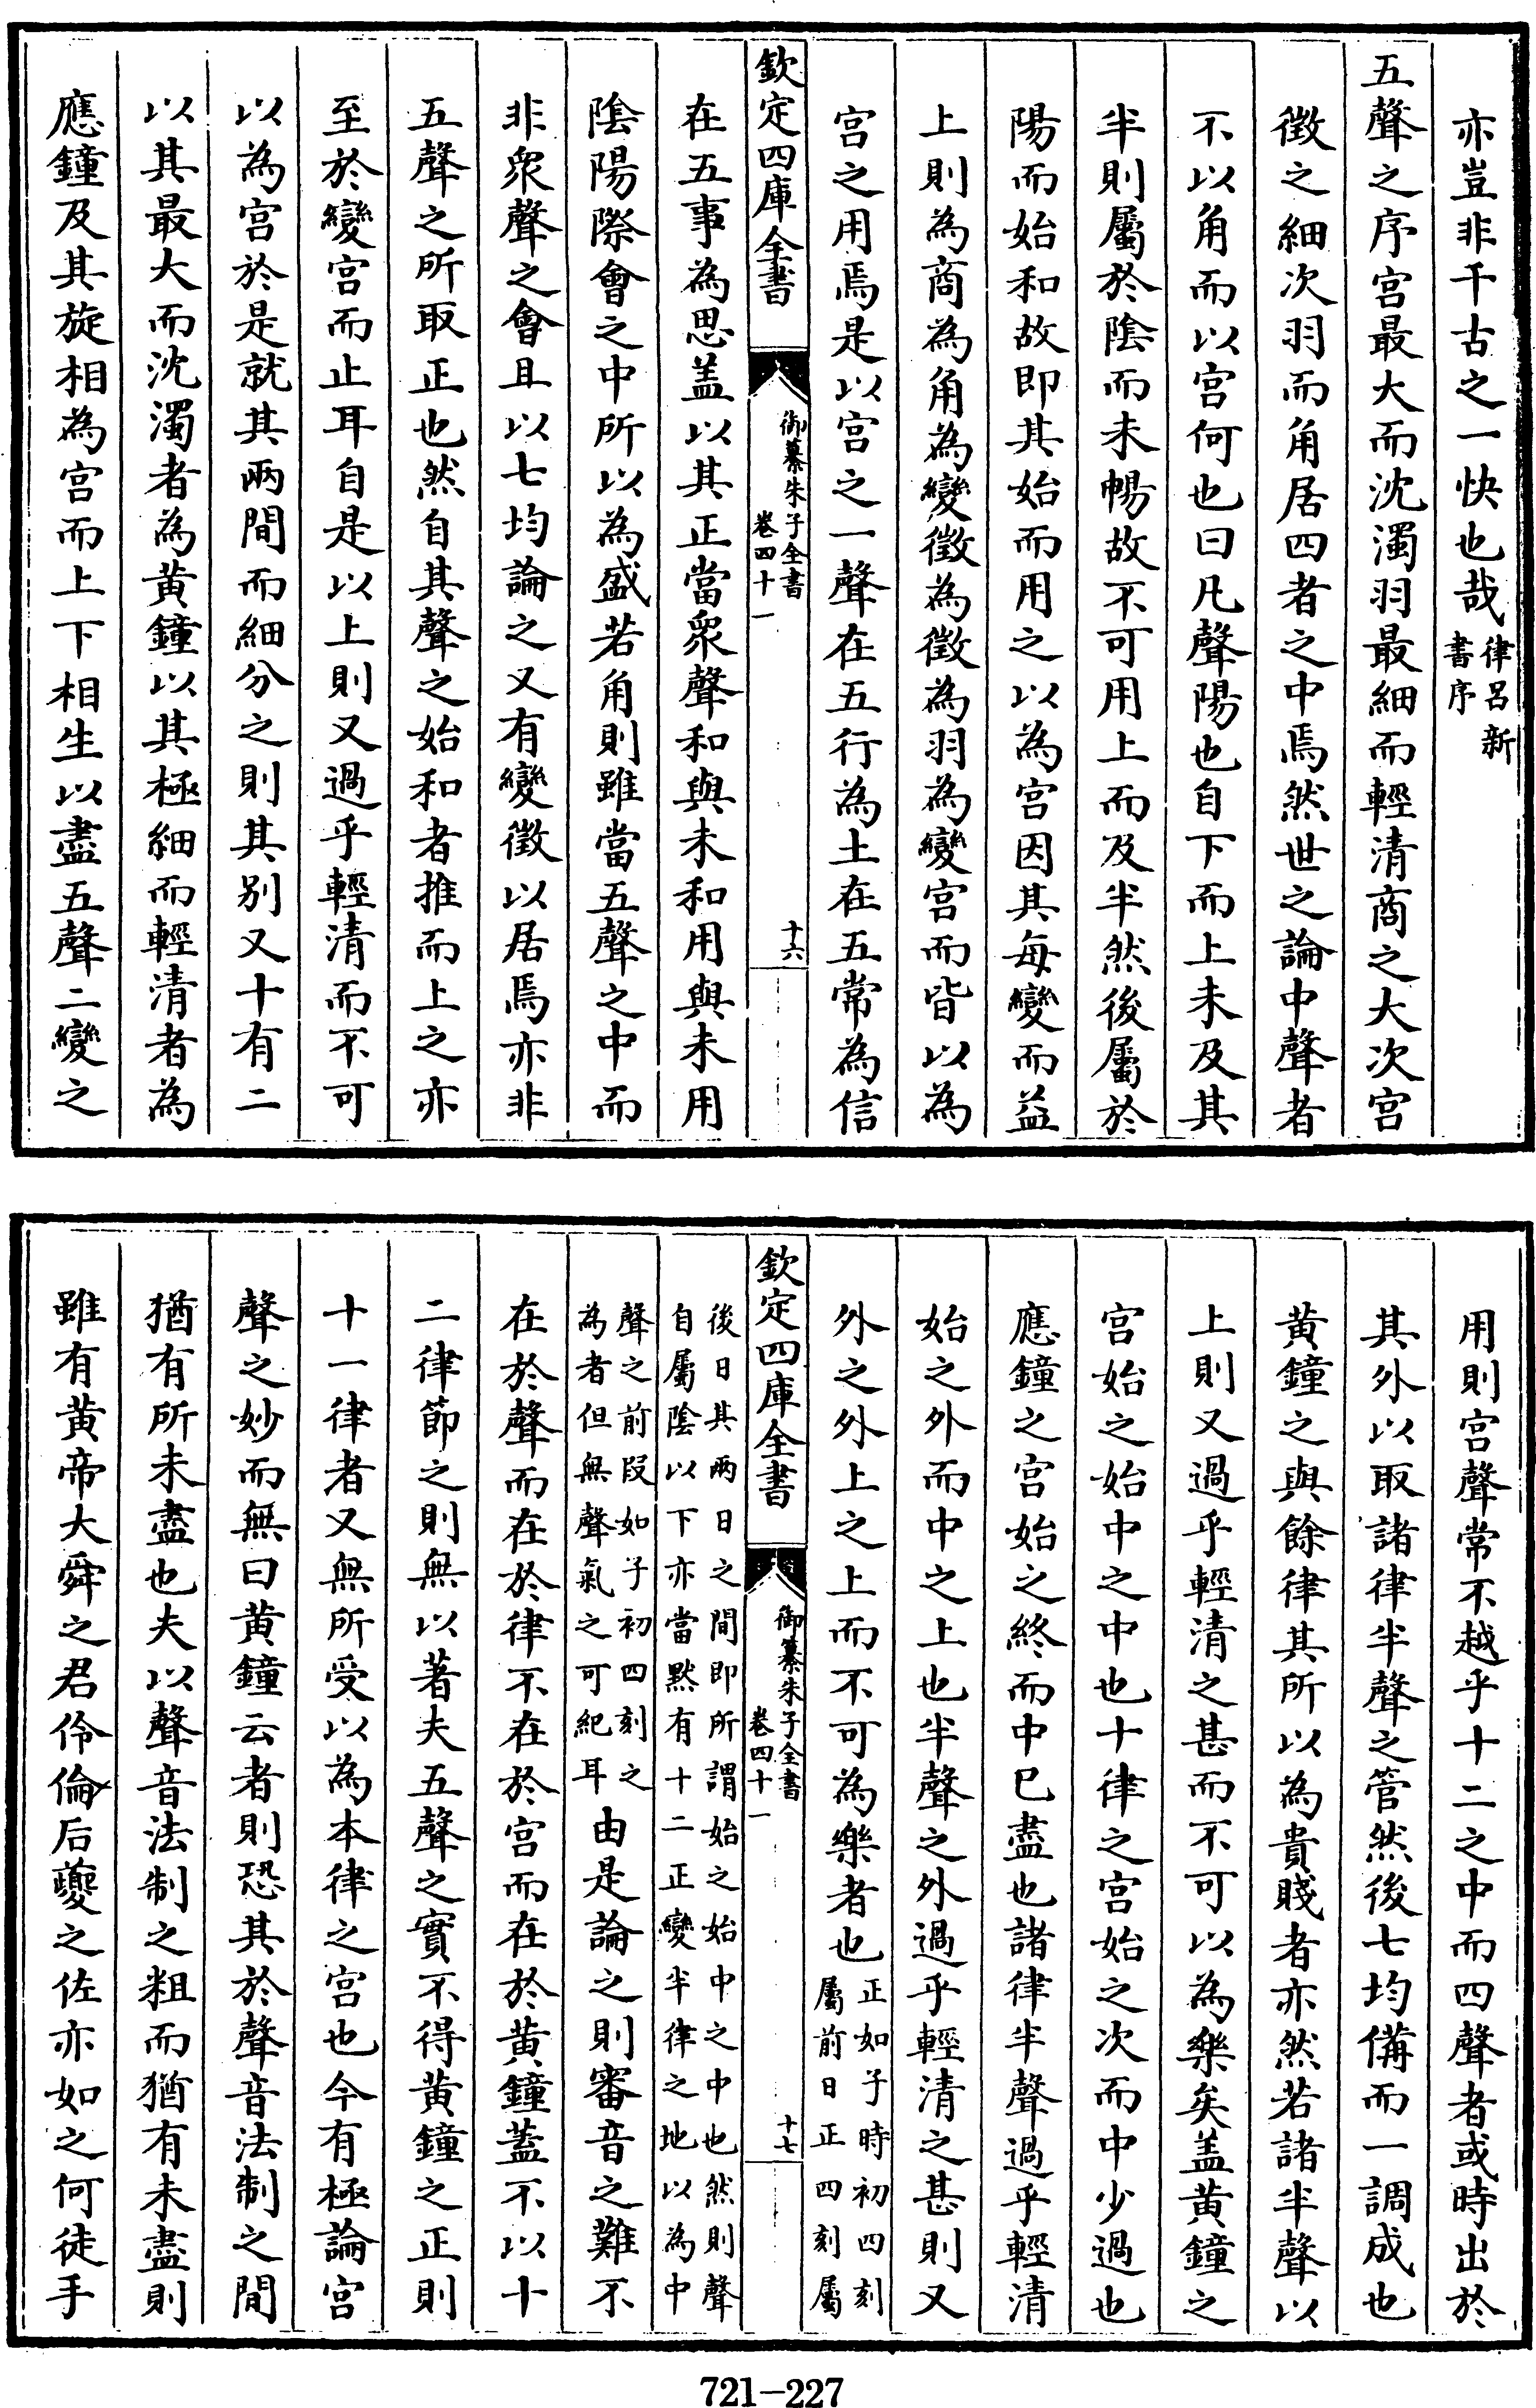 亦豈非千古之一快也哉律呂新
書序
五聲之序宮最大而沈濁羽最細而輕清商之大次宮
徵之細次羽而角居四者之中焉然世之論中聲者
不以角而以宮何也曰凡聲陽也自下而上未及其
半則屬於陰而未暢故不可用上而及半然後屬於
陽而始和故即其始而用之以為宮因其每變而益
上則為商為角為變徵為徵為羽為變宮而皆以為
宮之用焉是以宮之一聲在五行為土在五常為信
欽定四庫全書
御纂朱子全書
卷四十一
十六
在五事為思盖以其正當衆聲和與未和用與未用
陰陽際會之中所以為盛若角則雖當五聲之中而
非衆聲之會且以七均論之又有變徵以居焉亦非
五聲之所取正也然自其聲之始和者推而上之亦
至於變宮而止耳自是以上則又過乎輕清而不可
以為宮於是就其兩間而細分之則其別又十有二
以其最大而沈濁者為黃鐘以其極細而輕清者為
應鐘及其旋相為宮而上下相生以盡五聲二變之
用則宮聲常不越乎十二之中而四聲者或時出於
其外以取諸律半聲之管然後七均備而一調成也
黃鐘之與餘律其所以為貴賤者亦然若諸半聲以
上則又過乎輕清之甚而不可以為樂矣盖黃鐘之
宮始之始中之中也十律之宮始之次而中少過也
應鐘之宮始之終而中已盡也諸律半聲過乎輕清
始之外而中之上也半聲之外過乎輕清之甚則又
外之外上之上而不可為樂者也正如子時初四刻
屬前日正四刻屬
欽定四庫全書
御纂朱子全書
卷四十一
十七
後日其兩日之間即所謂始之始中之中也然則聲
自屬陰以下亦當默有十二正變半律之地以為中
聲之前段如子初四刻之
為者但無聲氣之可紀耳由是論之則審音之難不
在於聲而在於律不在於宮而在於黃鐘蓋不以十
二律節之則無以著夫五聲之實不得黃鐘之正則
十一律者又無所受以為本律之宮也今有極論宮
聲之妙而無曰黃鐘云者則恐其於聲音法制之間
猶有所未盡也夫以聲音法制之粗而猶有未盡則
雖有黃帝大舜之君伶倫后夔之佐亦如之何徒手
721-227